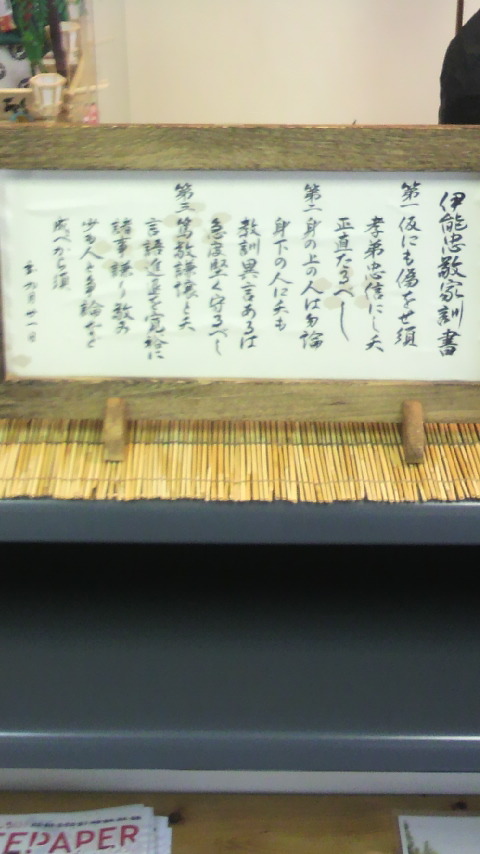 伊能忠敬家訓書
第一 仮にも偽をせ須
孝弟忠信にして
正直たるべし
第二 身の上の人は勿論
身下の人にても
教訓異言あるは
急度堅く守るべし
第三 篤敬謙譲とて
言語進退を寛裕に
諸事謙り敬み
少も人と争論など
成べから須
九月廿一日
TEPAPER